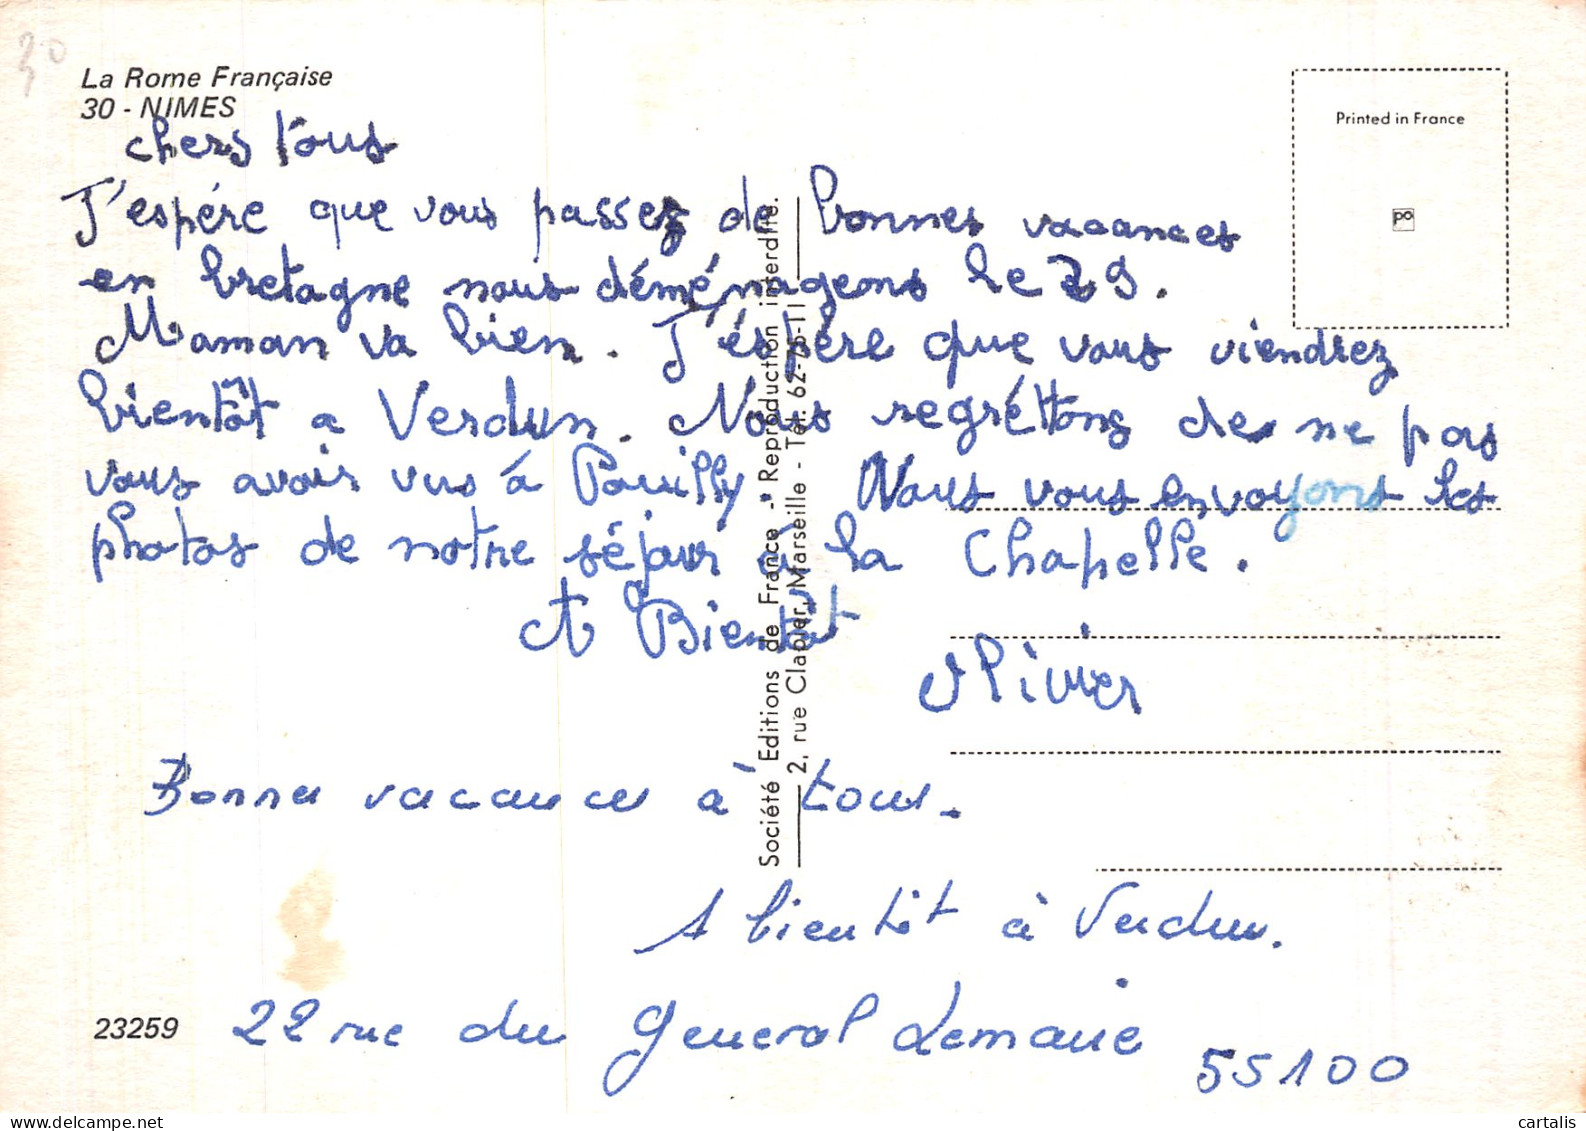 30
La Rome Française
30 - NIMES
Printed in France
po
chers tous
J'espére que vous passez de bonnes vacances
en bretagne nous déménageons le 29.
Maman va bien. J'éspére que vous viendrez
bientôt a Verdun. Nous regréttons de ne pas
vous avoir vus à Pouilly Nous vous envoyons les
photos de notre séjour à la Chapelle.
A Bientôt
Olivier
Bonnes vacances à tous.
A bientôt à Verdun.
22 rue du General Lemaire
55100
23259
Société Editions de France - Reproduction interdite.
2, rue Clapier, Marseille - Tél. 62-75-11
cartalis